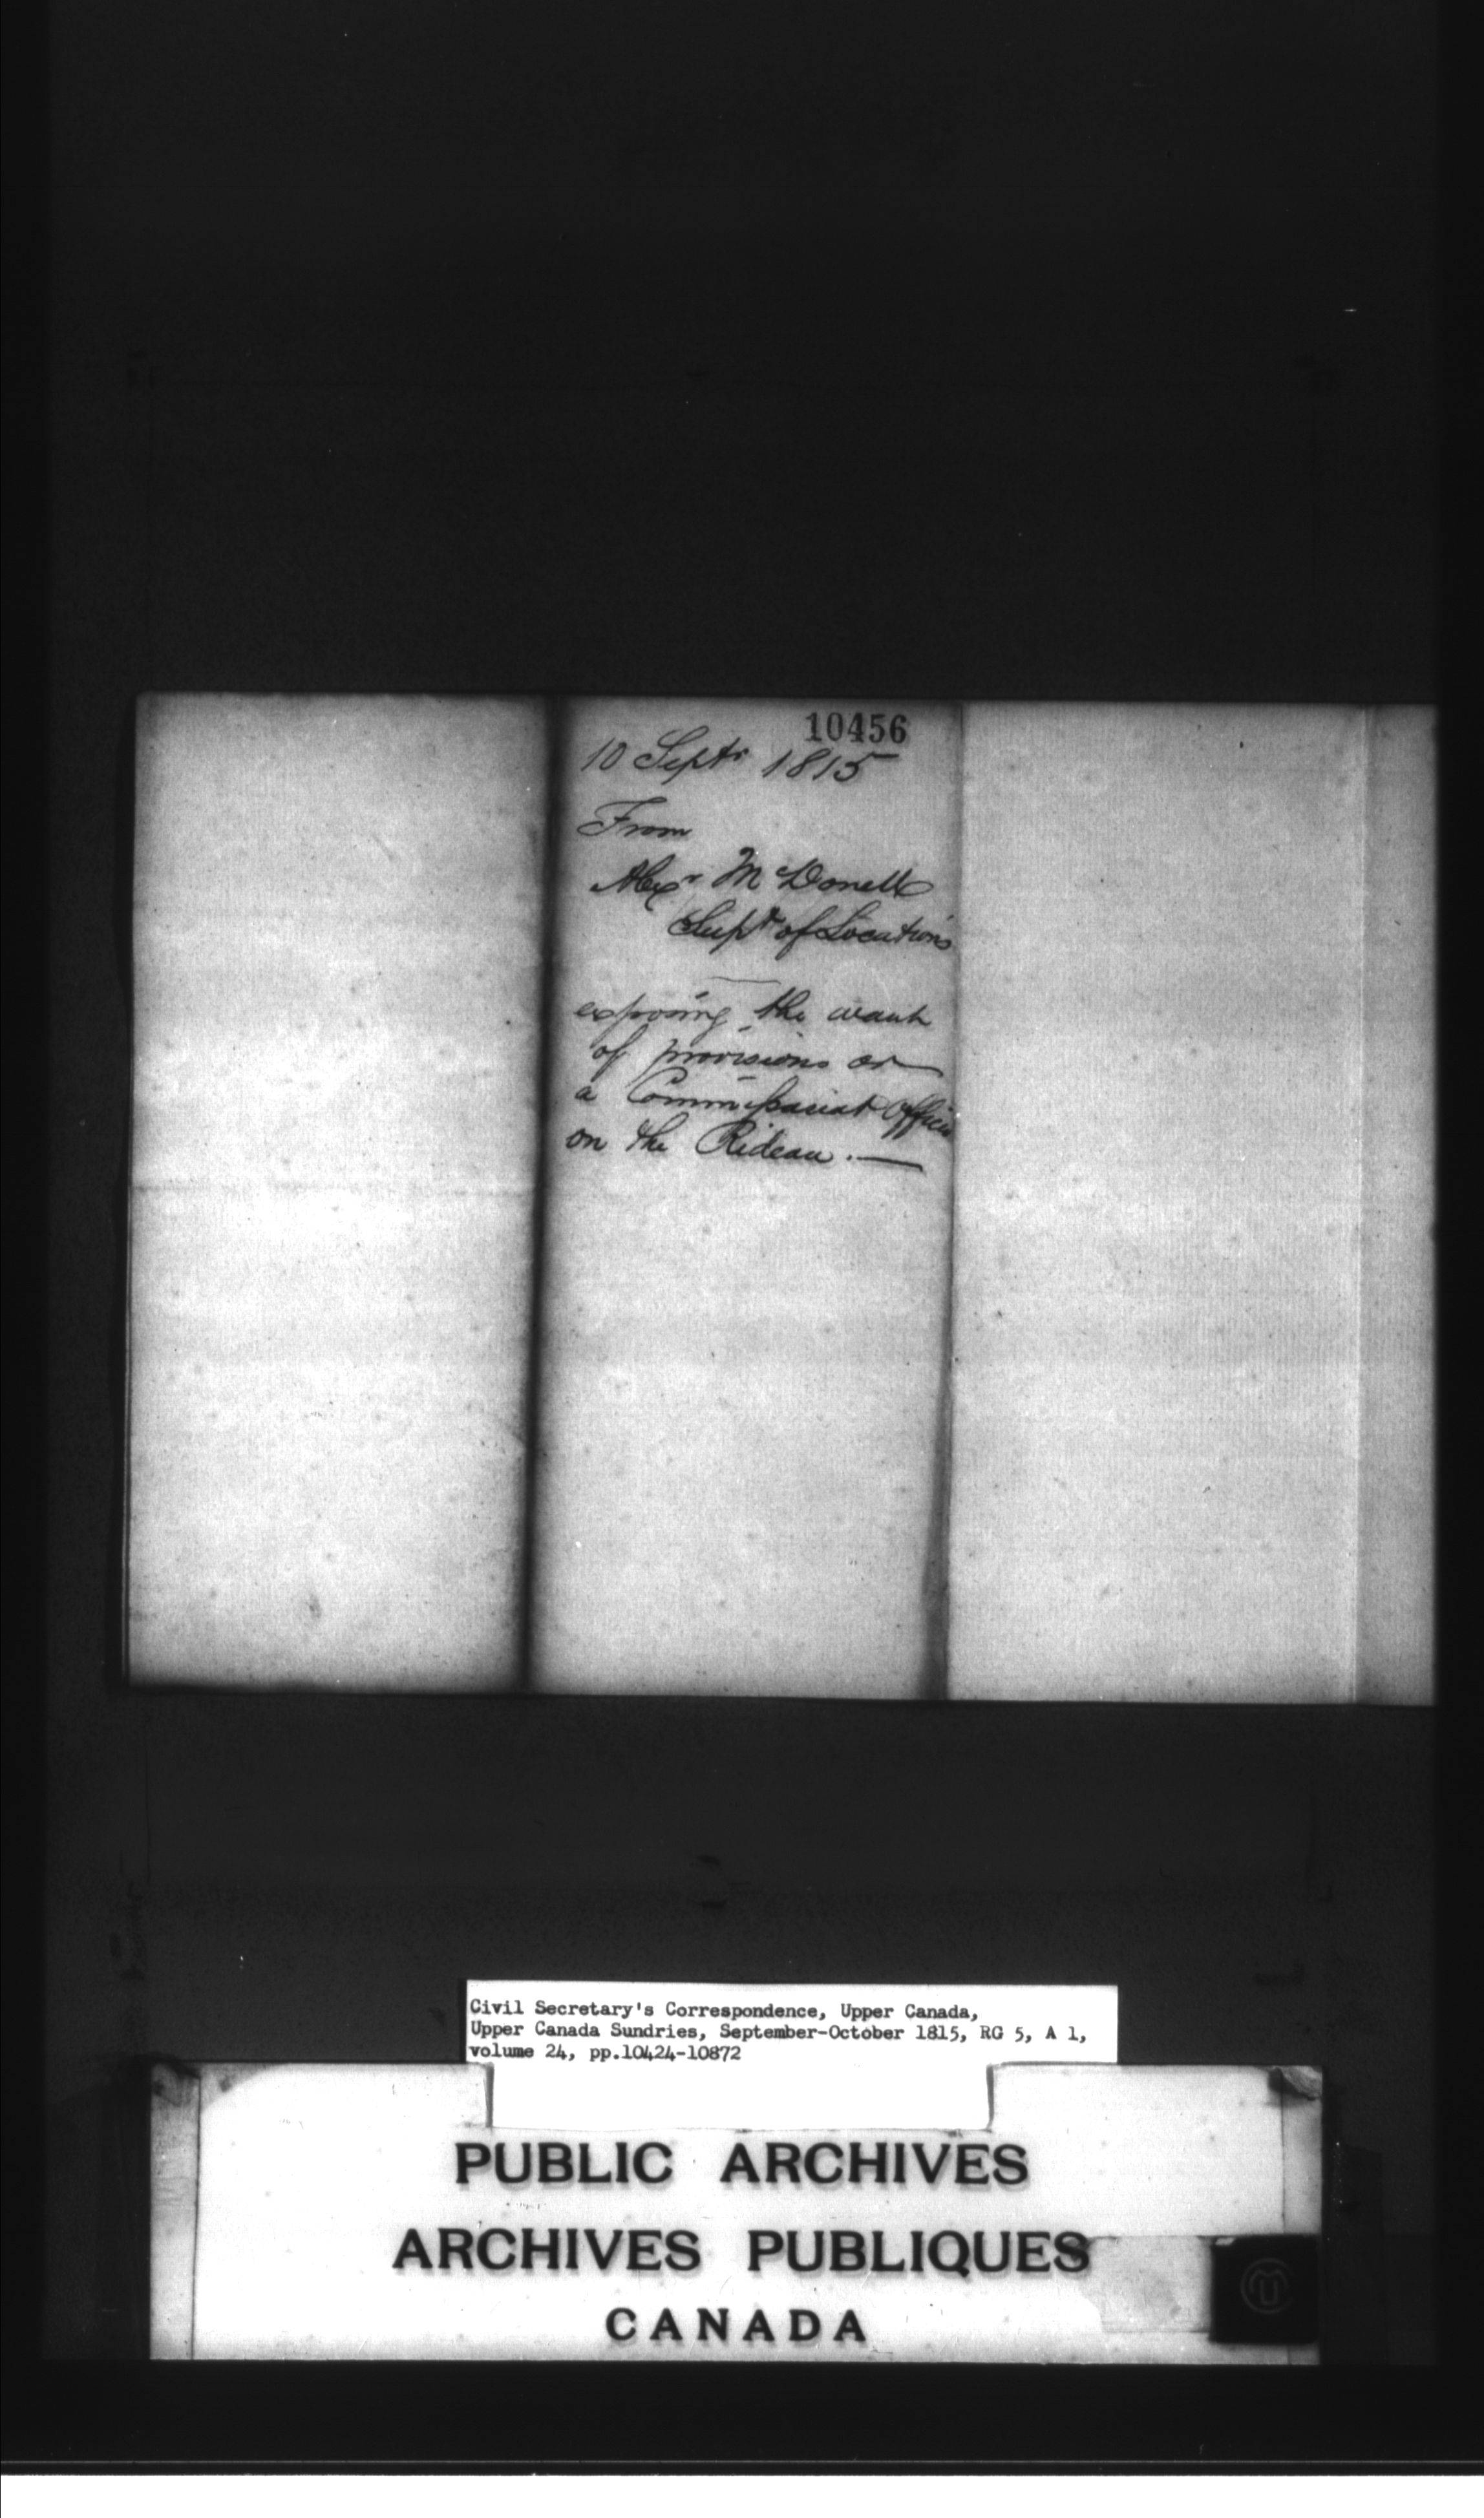 10456
10 Septr 1815
From
Alexr McDonell
Supt of Locations
exposing the want
of provisions or
a Commissariat Officer
on the Rideau. —
Civil Secretary's Correspondence, Upper Canada,
Upper Canada Sundries, September-October 1815, RG 5, A 1,
volume 24, pp.10424-10872
PUBLIC ARCHIVES
ARCHIVES PUBLIQUES
CANADA